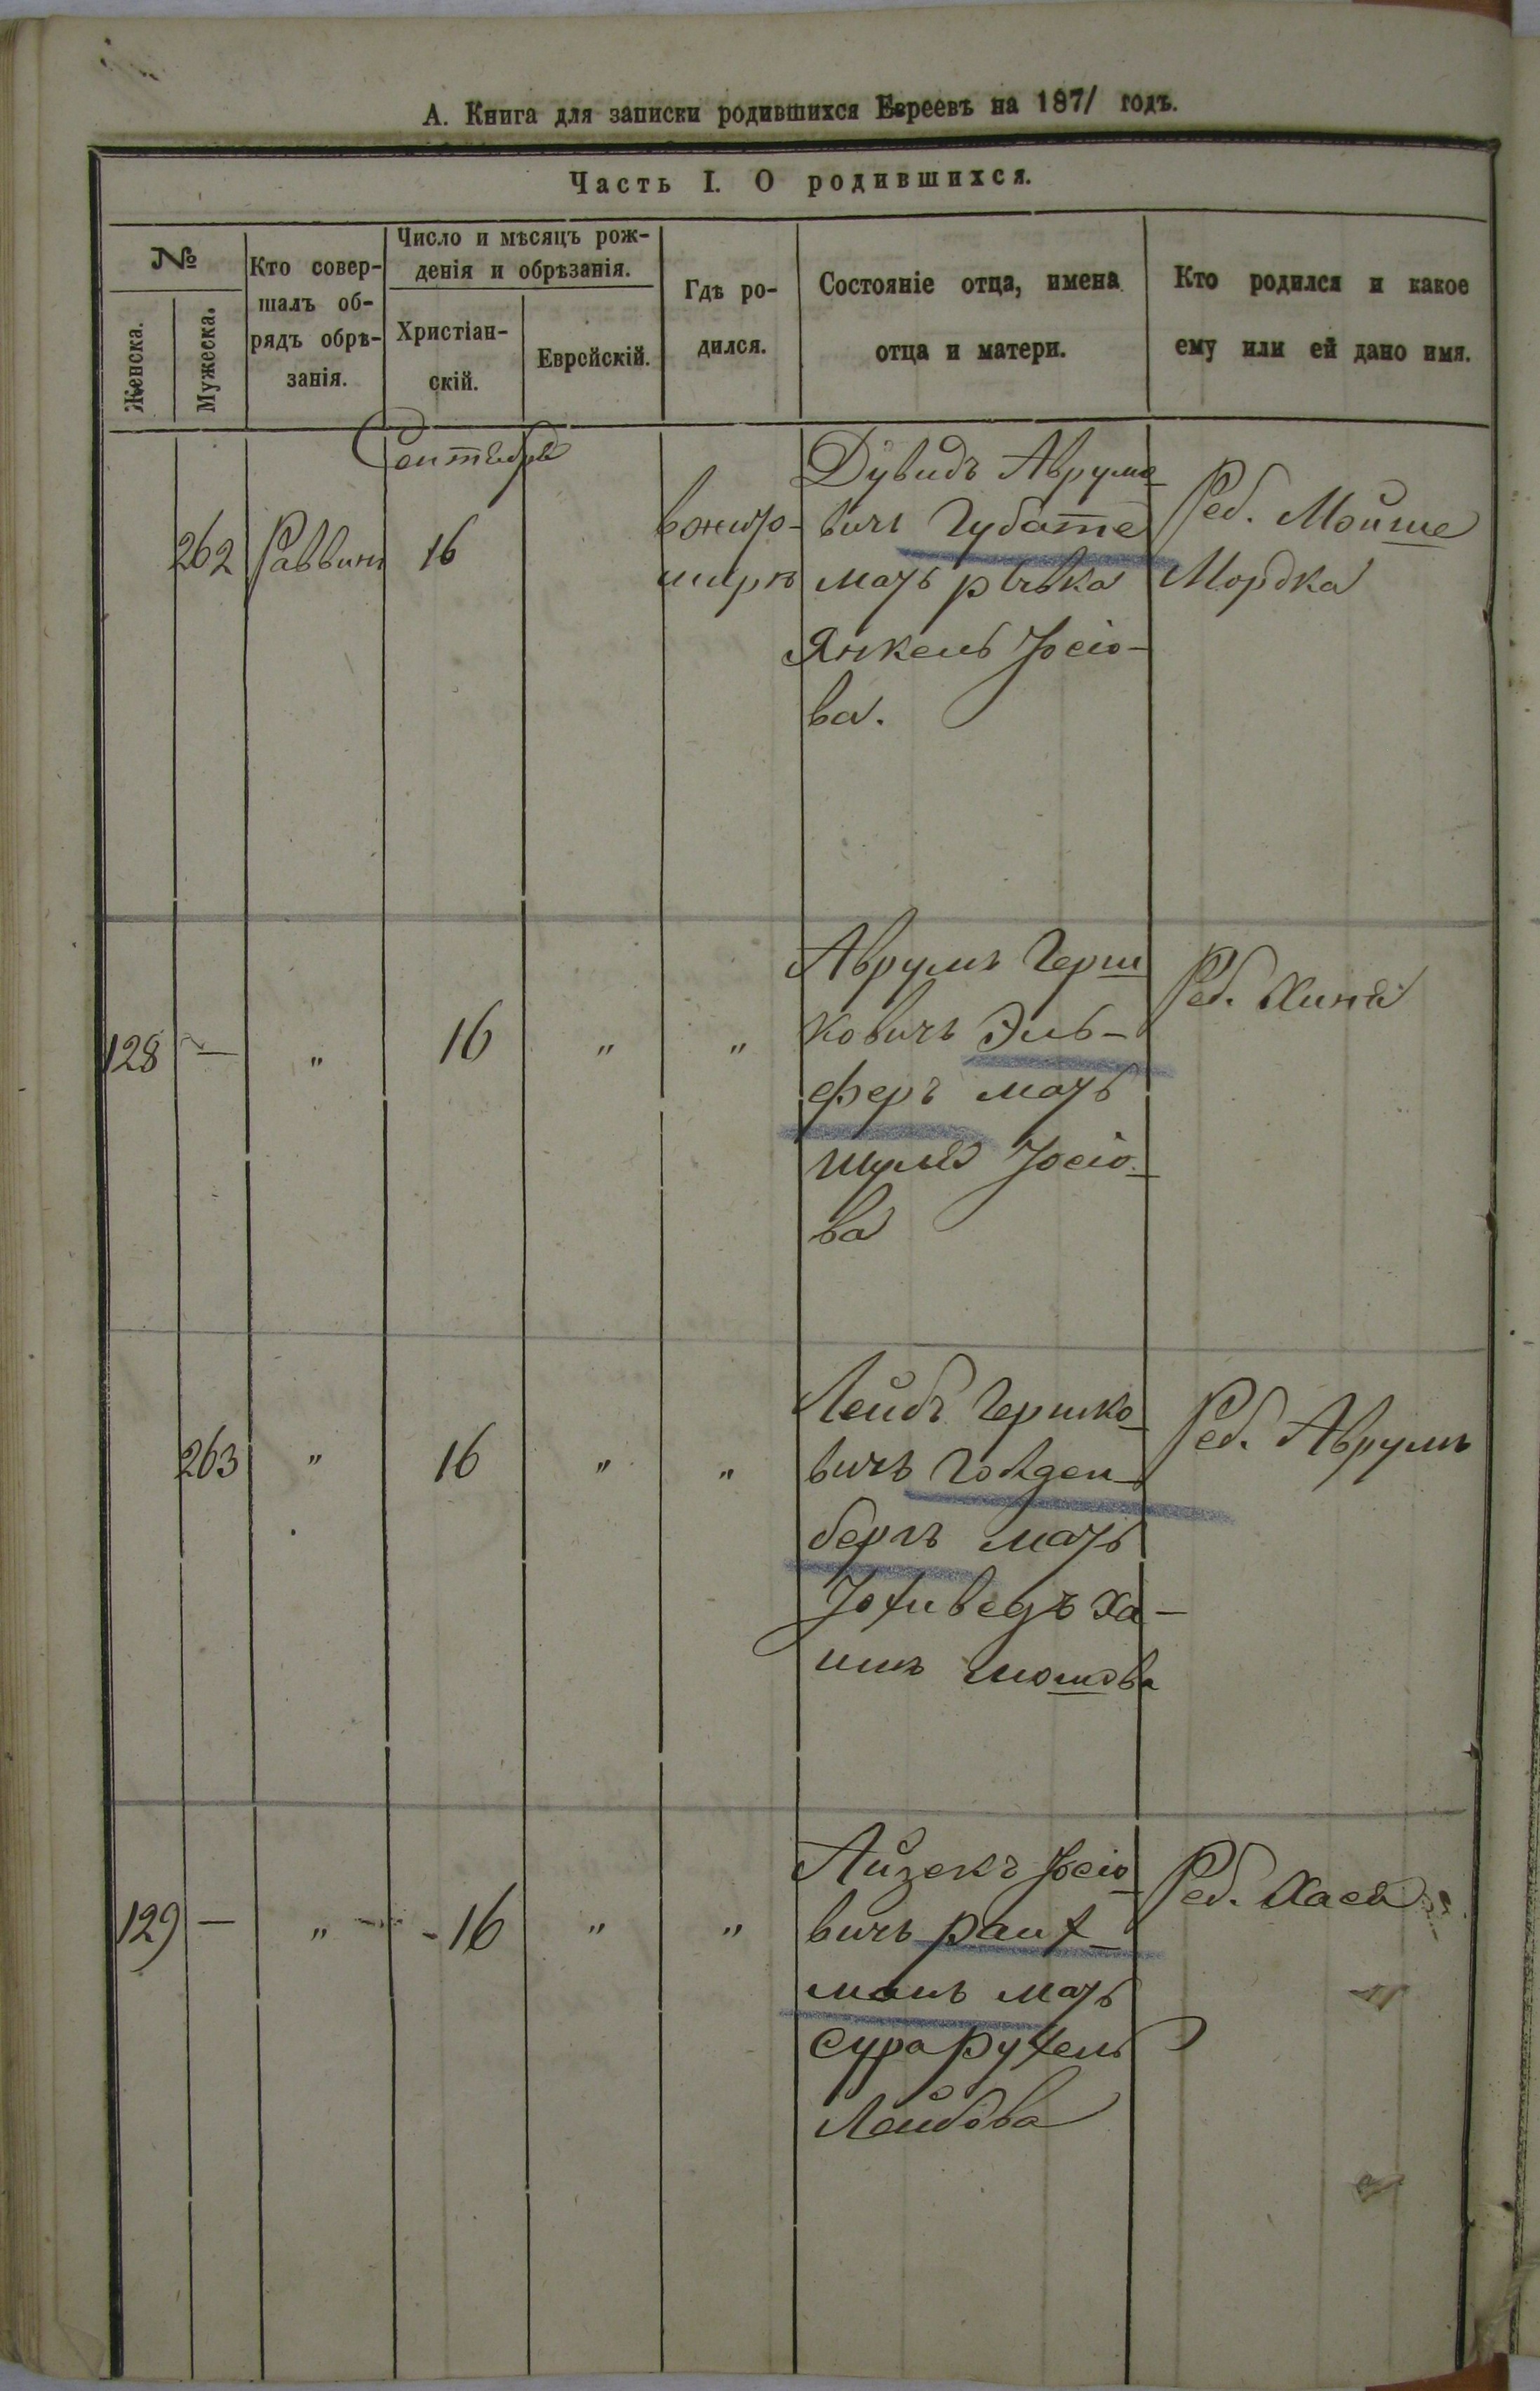 А. Книга для записки родившихся Евреевъ на 1871 годъ.
Часть I. О родившихся.
№
Женска.
Мужеска.
Кто совер-
шалъ об-
рядъ обрѣ-
занія.
Число и мѣсяцъ рож-
денія и обрѣзанія.
Христіан-
скій.
Еврейскій.
Гдѣ ро-
дился.
Состояніе отца, имена
отца и матери.
Кто родился и какое
ему или ей дано имя.
Сентября
262
Раввинъ
16
вжито-
мирѣ
Дувидъ Аврумо
вичъ Губате
мать рывка
Янкель Іосіо-
ва.
Реб. Мойше
Мордка
128 — " 16 " "
Аврумъ Герш
ковичъ Эль-
феръ мать
шулы Іосіо-
ва
Реб. Хиня
263 " 16 " "
Лейбъ Гершко
вичъ Голден
бергъ мать
Іохиведъ Ха-
имъ мошкова
Реб. Аврумъ
129 — " 16 " "
Айзекъ Іосіо
вичъ райх-
манъ мать
сура рухель
Лейбова
Реб. Хася